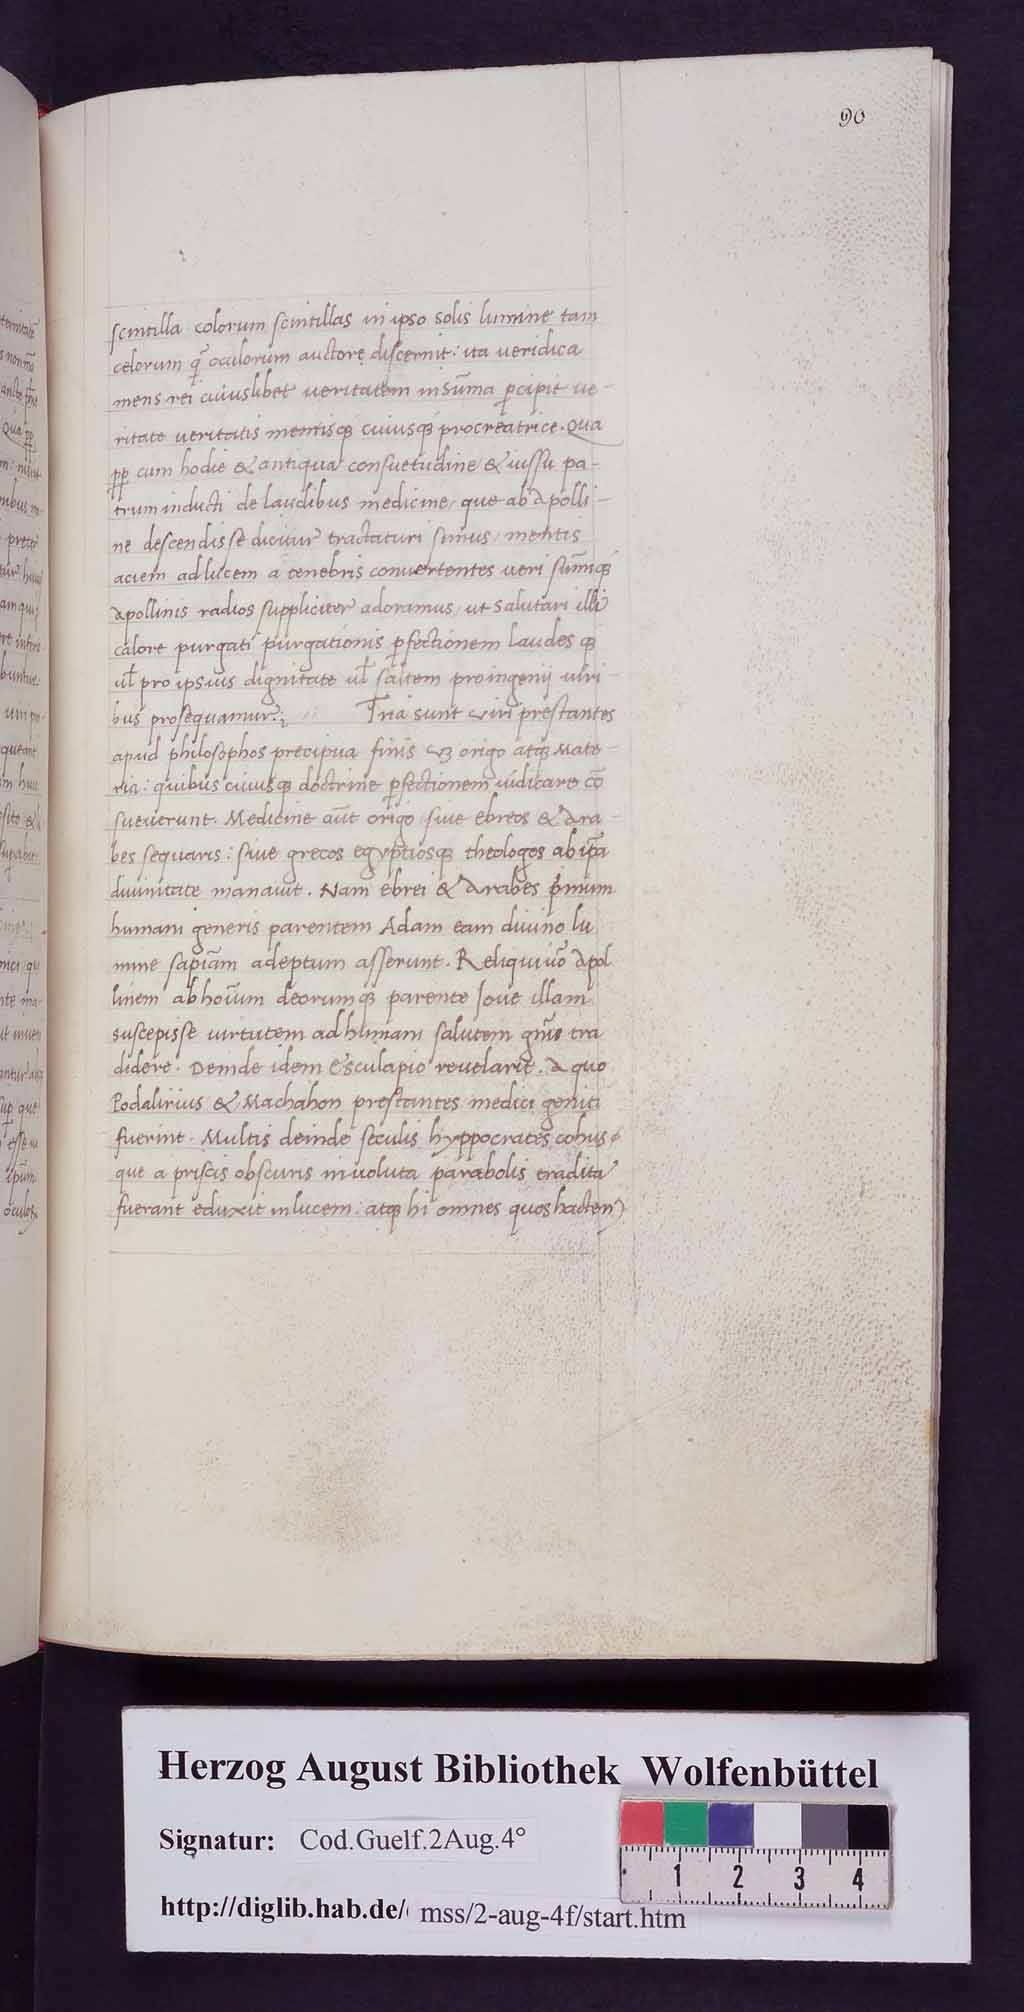 90
scintilla colorum scintillas in ipso solis lumine tam
celorum q̃ oculorum auctore discernit: ita ueridica
mens rei cuiuslibet ueritatem in sũma ꝑcipit ue-
ritate ueritatis mentisqꝫ cuiusqꝫ procreatrice. Qua
ꝓp cum hodie & antiqua consuetudine & iussu pa-
trum inducti de laudibus medicine, que ab Apolli-
ne descendisse dicitur tractaturi simus, mentis
aciem ad lucem a tenebris conuertentes ueri sũmiqꝫ
Apollinis radios suppliciter adoramus, ut salutari illi
calore purgati purgationis ꝑfectionem laudes qꝫ
ul̃ pro ipsius dignitate ul̃ saltem pro ingenij uiri-
bus prosequamur. Tria sunt uiri prestantes
apud philosophos precipua finis & origo atqꝫ mate-
ria: quibus cuiusqꝫ doctrine ꝑfectionem iudicare cõ
sueuerunt. Medicine aũt origo siue ebreos & Ara-
bes sequaris: siue grecos egyptiosqꝫ theologos ab ip̃a
diuinitate manauit. Nam ebrei & Arabes p̃mum
humani generis parentem Adam eam diuino lu
mine sapiãm adeptum asserunt. Reliqui uõ Apol
linem ab hoĩum deorumqꝫ parente Ioue illam
suscepisse uirtutem ad humani salutem gñis tra
didere. Deinde idem Esculapio reuelarit. A quo
Podalirius & Machahon prestantes medici geniti
fuerint. Multis deinde seculis hyppocrates cohus
que a priscis obscuris inuoluta parabolis tradita
fuerant eduxit in lucem: atqꝫ hi omnes quos hacten
Herzog August Bibliothek Wolfenbüttel
Signatur: Cod.Guelf.2Aug.4°
http://diglib.hab.de/ mss/2-aug-4f/start.htm
1 2 3 4